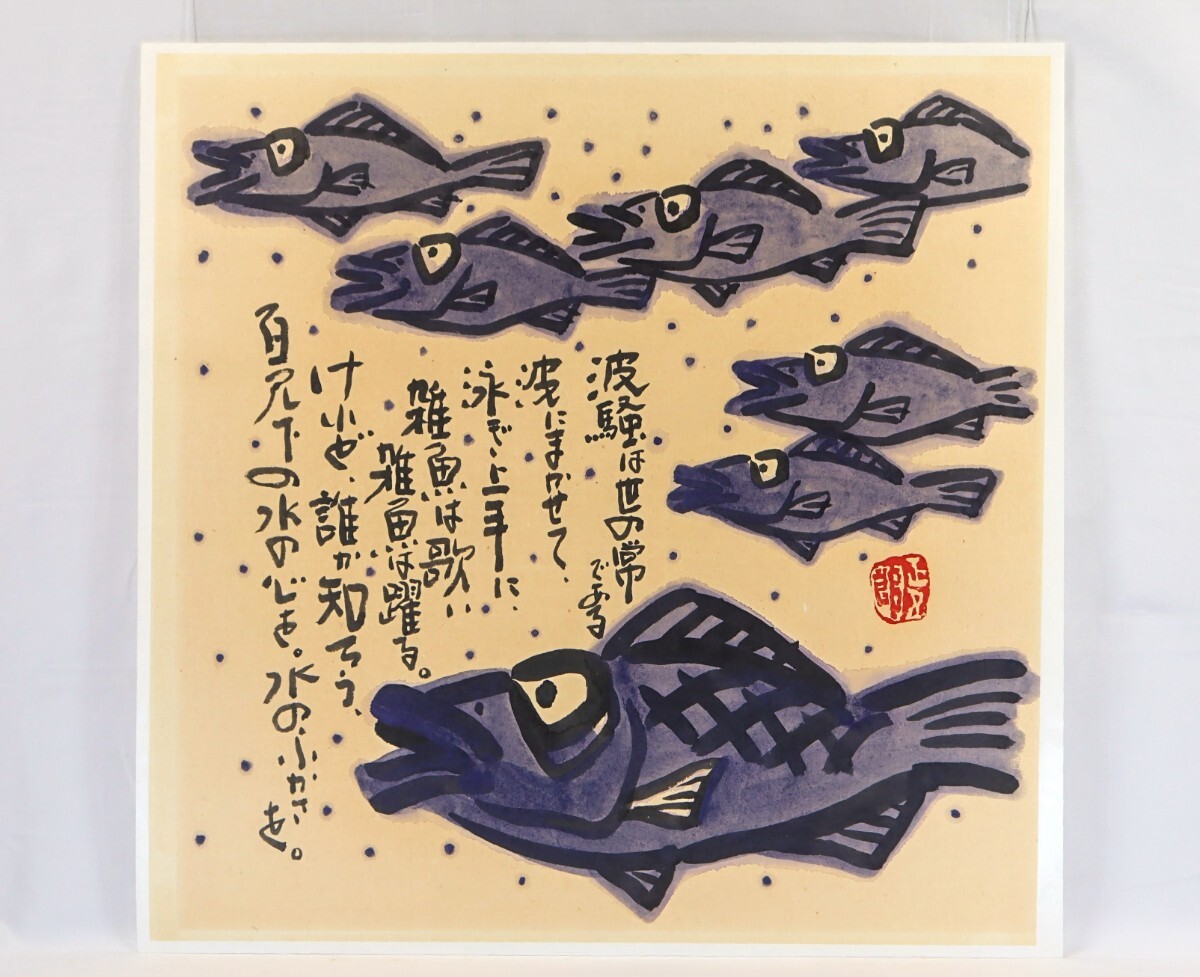 波騒は世の常である
波にまかせて、
泳ぎ上手に、
雑魚は歌い
雑魚は躍る。
けれど、誰か知ろう、
百尺下の水の心を。水のふかさを。